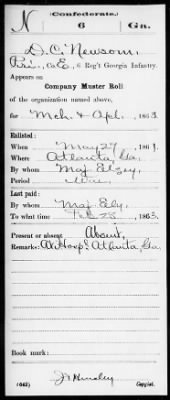 (Confederate.)
N 6 Ga.
D. C. Newsom,
Pri., Co. E, 6 Reg't Georgia Infantry.
Appears on
Company Muster Roll
of the organization named above,
for Mch. & Apl., 1863.
Enlisted:
When May 27, 1861.
Where Atlanta, Ga.
By whom Maj. Elzey,
Period War
Last paid:
By whom Maj. Ely,
To what time Feb 28, 1863.
Present or absent Absent,
Remarks: At Hosp. Atlanta, Ga.
Book mark:
(642)
Copyist.